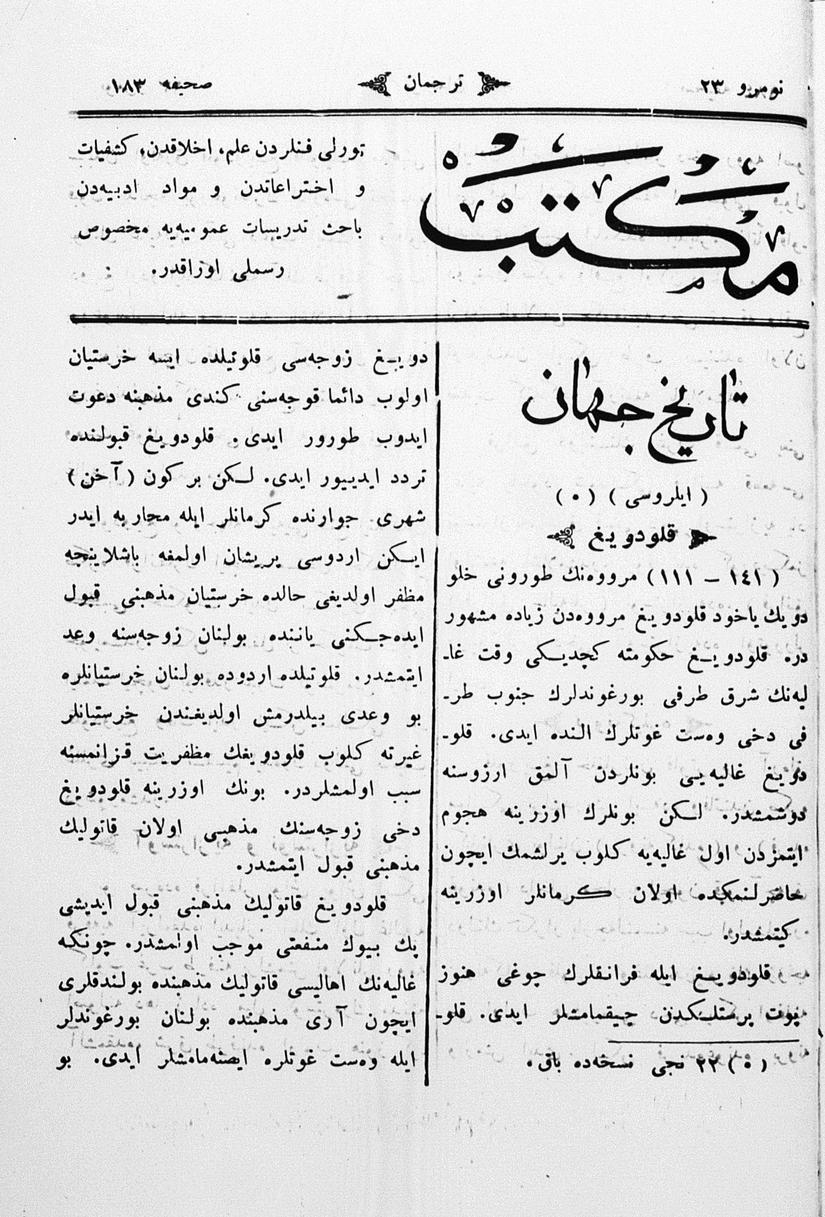 نومرو ٢٣
ترجمان
صحیفه ١٨٣
مكتب
تورلی فنلردن علم، اخلاقدن، كشفیات
و اختراعاتدن و مواد ادبیه‌دن
باحث تدریسات عمومیه‌یه مخصوص
رسملی اوراقدر.
تاریخ جهان
( ایلروسی ) ( ٥ )
قلودویغ
( ١٤١ — ١١١ ) مرووه‌نك طورونی خلو
دویك یاخود قلودویغ مرووه‌دن زیاده مشهور
دره قلودویغ حكومته كچدیكی وقت غا-
لیه‌نك شرق طرفی بورغوندلرك جنوب طر-
فی دخی وه‌ست غوتلرك النده ایدی. قلو-
دویغ غالیه‌یی بونلردن آلمق ارزوسنه
دوشمشدر. لكن بونلرك اوزرینه هجوم
ایتمزدن اول غالیه‌یه كلوب یرلشمك ایچون
حاضرلنمكده اولان كرمانلر اوزرینه
كیتمشدر.
قلودویغ ایله فرانقلرك چوغی هنوز
پوت پرستلكدن چیقمامشلر ایدی. قلو-
( ٥ ) ٢٢ نجی نسخه‌ده باق.
دویغ زوجه‌سی قلوتیلده ایسه خرستیان
اولوب دائما قوجه‌سنی كندی مذهبنه دعوت
ایدوب طورور ایدی. قلودویغ قبولنده
تردد ایدییور ایدی. لكن بر كون (آخن)
شهری جوارنده كرمانلر ایله محاربه ایدر
ایكن اردوسی پریشان اولمغه باشلاینجه
مظفر اولدیغی حالده خرستیان مذهبنی قبول
ایده‌جكنی یاننده بولنان زوجه‌سنه وعد
ایتمشدر. قلوتیلده اردوده بولنان خرستیانلره
بو وعدی بیلدرمش اولدیغندن خرستیانلر
غیرته كلوب قلودویغك مظفریت قزانمسنه
سبب اولمشلردر. بونك اوزرینه قلودویغ
دخی زوجه‌سنك مذهبی اولان قاتولیك
مذهبنی قبول ایتمشدر.
قلودویغ قاتولیك مذهبنی قبول ایدیشی
پك بیوك منفعتی موجب اولمشدر. چونكه
غالیه‌نك اهالیسی قاتولیك مذهبنده بولندقلری
ایچون آری مذهبنده بولنان بورغوندلر
ایله وه‌ست غوتلره ایصنه‌مامشلر ایدی. بو